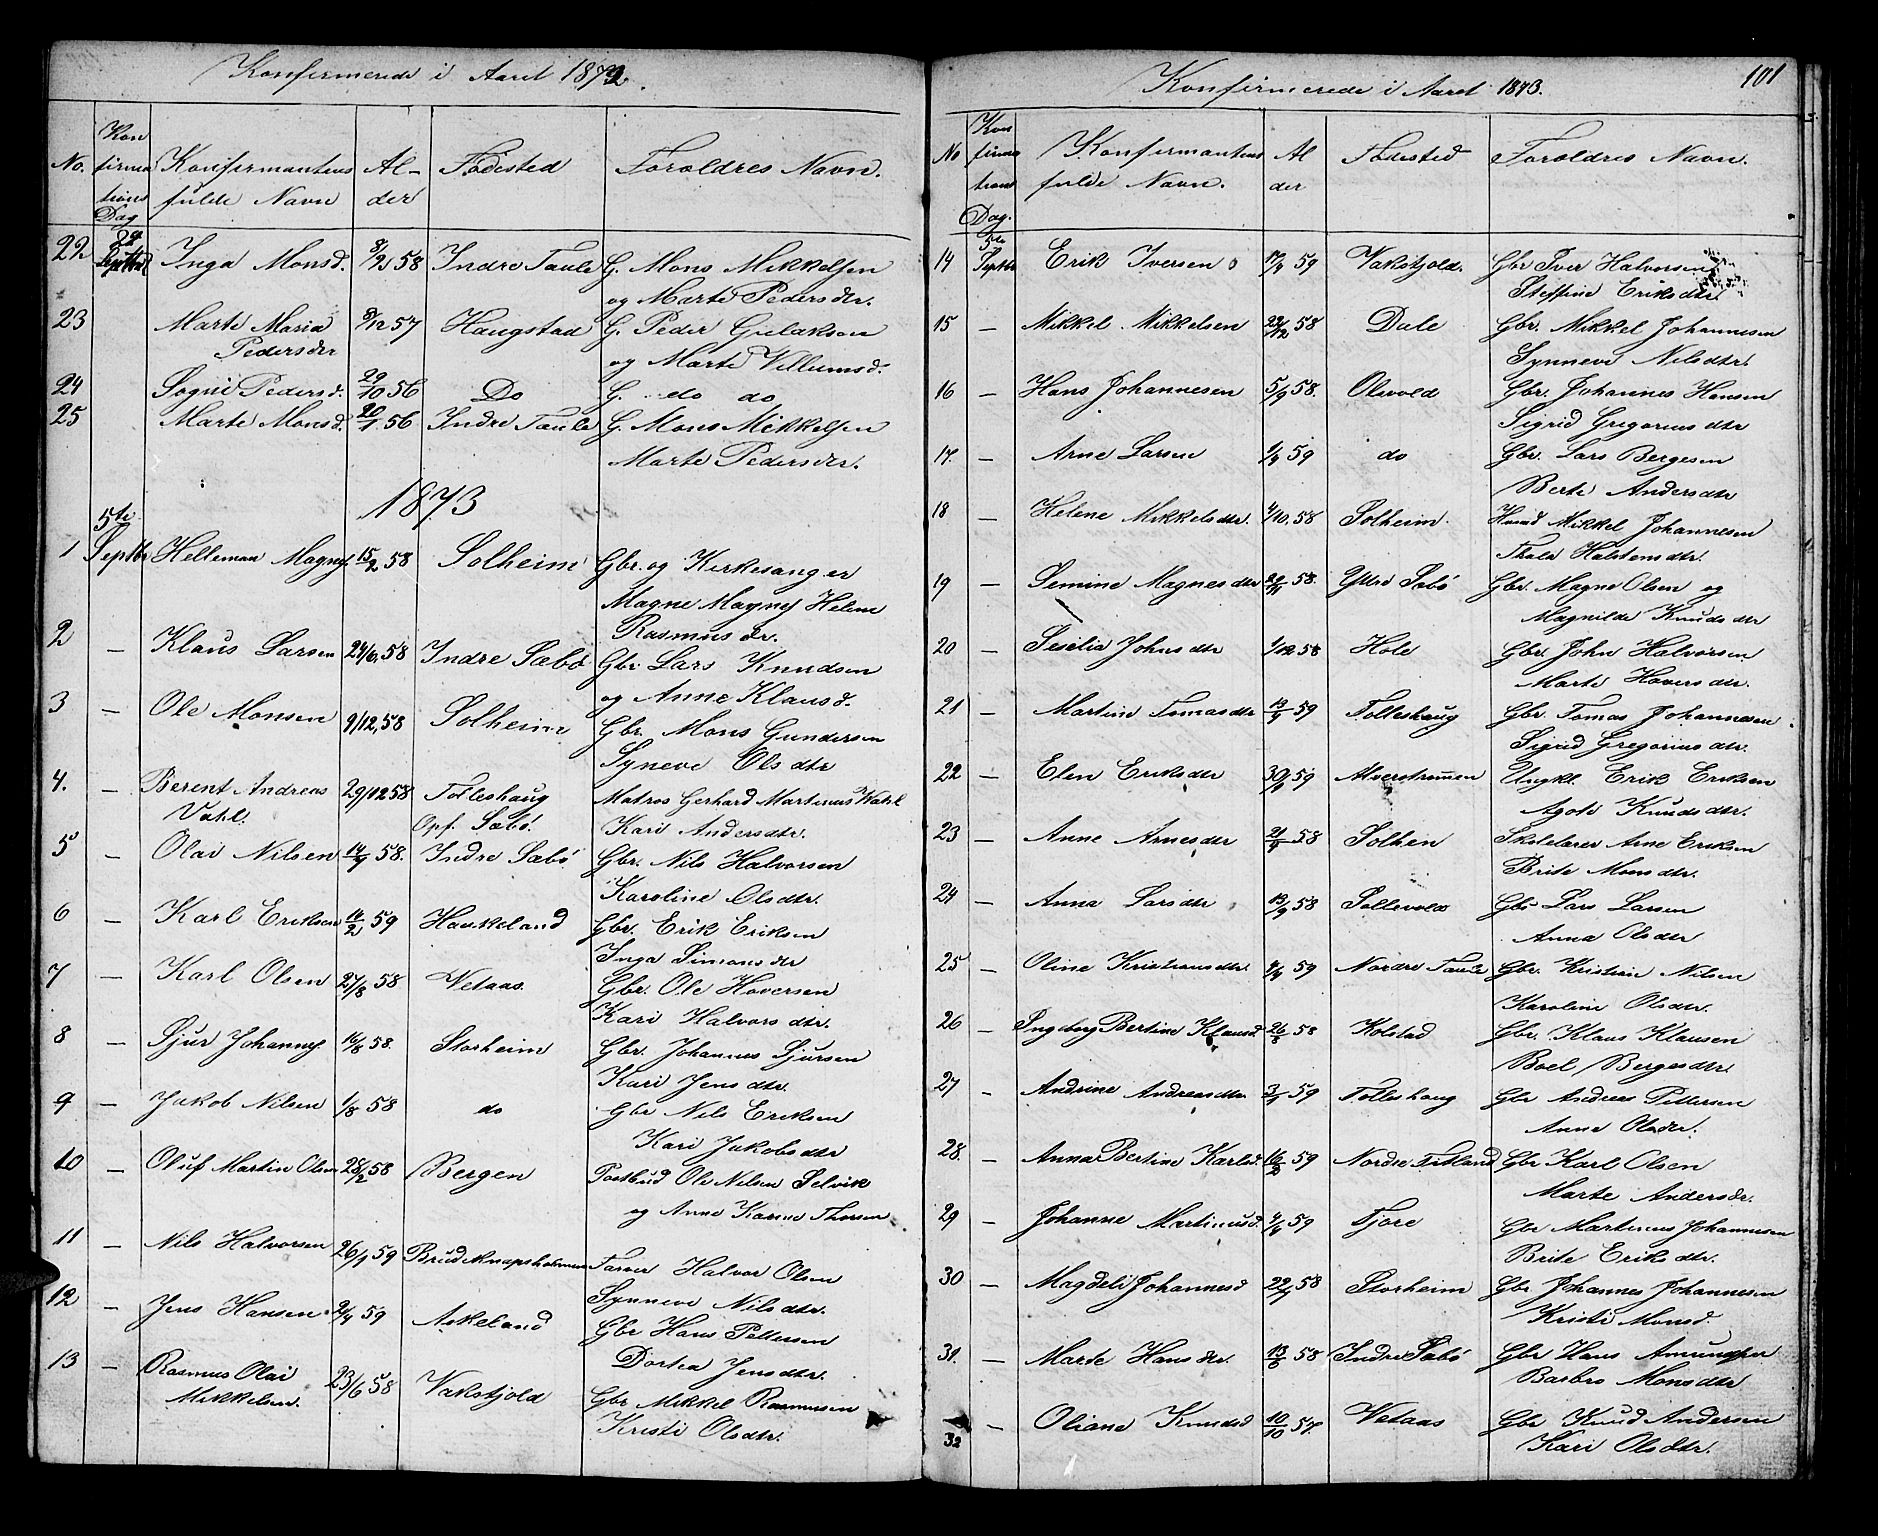 Konfirmerede i Aaret 1872.
No. Konfirmations Dag Konfirmantens fulde Navn Alder Födested Foroldres Navn.
22 29 Septbr Inga Monsd. 8/2 58 Indre Taule G. Mons Mikkelsen
og Marte Pedersdr.
23 Marte Maria 8/12 57 Haugstad G. Peder Gulaksen
Pedersdr og Marte Villumsd.
24 Pedersd. 29/10 56 Do G. do do
25 Marte Monsd. 20/1 56 Indre Taule G. Mons Mikkelsen
Marte Pedersdr.
1873
5te
1 Septbr Helleman Magnes 15/2 58 Solheim Gbr. og Kirkesanger
Magne Magnes Helene
Rasmusdr.
2 — Klaus Larsen 24/6, 58 Indre Sæbö Gbr. Lars Knudsen
og Anne Klausd.
3 — Ole Monsen 9/12, 58 Solheim Gbr. Mons Gundersen
Syneve Olsdtr
4. — Berent Andreas 29/12 58 Folleshaug Matros Gerhard Martinus Wahl
Vahl. Opf. Sæbö. Kari Andersdtr.
5 — Olai Nilsen 14/9 58. Indre Sæbö Gbr. Nils Halvorsen
Karoline Olsdtr.
6 — Karl Eriksen 14/2 59 Haukeland Gbr. Erik Eriksen
Inga Simonsdr
7 — Karl Olsen 27/8 58 Vetaas. Gbr. Ole Haversen
Kari Halvorsdtr.
8 — Sjur Johannes 16/8 58. Storheim Gbr. Johannes Sjursen
Kari Jensdtr.
9 — Jakob Nilsen 1/8 58 do Gbr Nils Eriksen
Kari Jakobsdtr
10 — Oluf Martin Olsen 28/2 58 Bergen Postbud Ole Nilsen Selvik
og Anne Karine Thorsen
11 — Nils Halvorsen 26/1 59 Brudeknapsholmen Farver Halvor Olsen
Synneve Nilsdtr.
12 — Jens Hansen 2/4 59 Askeland Gbr Hans Pettersen
Dortea Jensdtr.
13 — Rasmus Olai 23/6 58 Vakstjold Gbr Mikkel Rasmusen
Mikkelsen. Kristi Olsdtr.
Konfirmerede i Aaret 1873. 101
No Konfirmations Dag. Konfirmantens fulde Navn. Alder Födested Foroldres Navn.
14 5te Septbr Erik Iversen 17/4 59 Vakstjold. Gbr Iver Halvorsen
Steffine Eriksdtr.
15 — Mikkel Mikkelsen 23/12 58 Dale Gbr. Mikkel Johannesen
Synneve Nilsdtr.
16 — Hans Johannesen 5/9 58. Olsvold Gbr. Johannes Hansen
Sigrid Gregoriusdtr
17. — Arne Larsen 1/4 59 do Gbr. Lars Bergesen
Berte Andersdtr
18 — Helene Mikkelsdtr. 4/10. 58 Solheim. Husmd Mikkel Johannesen
Halstensdtr.
19 — Semine Magnesdtr 29/11 58. Ytre Sæbö Gbr. Magne Olsen og
Magnilde Knudsdtr
20 — Seselia Johnsdtr 1/12 58 Hole Gbr. John Halvorsen
Marte Haversdtr.
21 — Martine Tomasdtr 13/4 59 Folleshaug Gbr. Tomas Johannesen
Sigrid Gregoriusdtr.
22 — Elen Eriksdtr 30/4 59 Alverstrømmen Ungkl. Erik Eriksen
Agote Knudsdtr.
23 — Anne Arnesdtr 21/9 58 Solhen Skolelærer Arne Eriksen
Brite Monsdtr.
24 — Anna Larsdtr 13/9 58 Sollevold Gbr Lars Larsen
Anna Olsdtr
25 — Oline Kristiansdtr. 4/4 59 Nordre Taule Gbr. Kristian Nilsen
Karoline Olsdtr.
26 — Ingeborg Bertine Klausd. 26/8 58 Kolstad Gbr. Klaus Klausen
Boel Bergesdtr.
27 — Andrine Andreasdtr. 3/4 59 Folleshaug Gbr Andreas Pettersen
Anna Olsdr.
28. — Anna Bertine Karlsd. 16/2 59 Nordre Titland Gbr Karl Olsen
Marte Andersdr.
29 — Johanne Martinusd. 4/6 59 Fjore Gbr Martinus Johannesen
Brite Eriksdtr.
30 — Magdeli Johannesd 22/7 58 Storheim Gbr Johannes Johannesen
Kristi Monsd.
31. — Marte Hansdtr. 13/8 58 Indre Sæbö Gbr Hans Amundsen
Barbro Monsdtr
32 — Oliane Knudsd 10/10 57. Vetaas Gbr Knud Andersen
Kari Olsdtr.